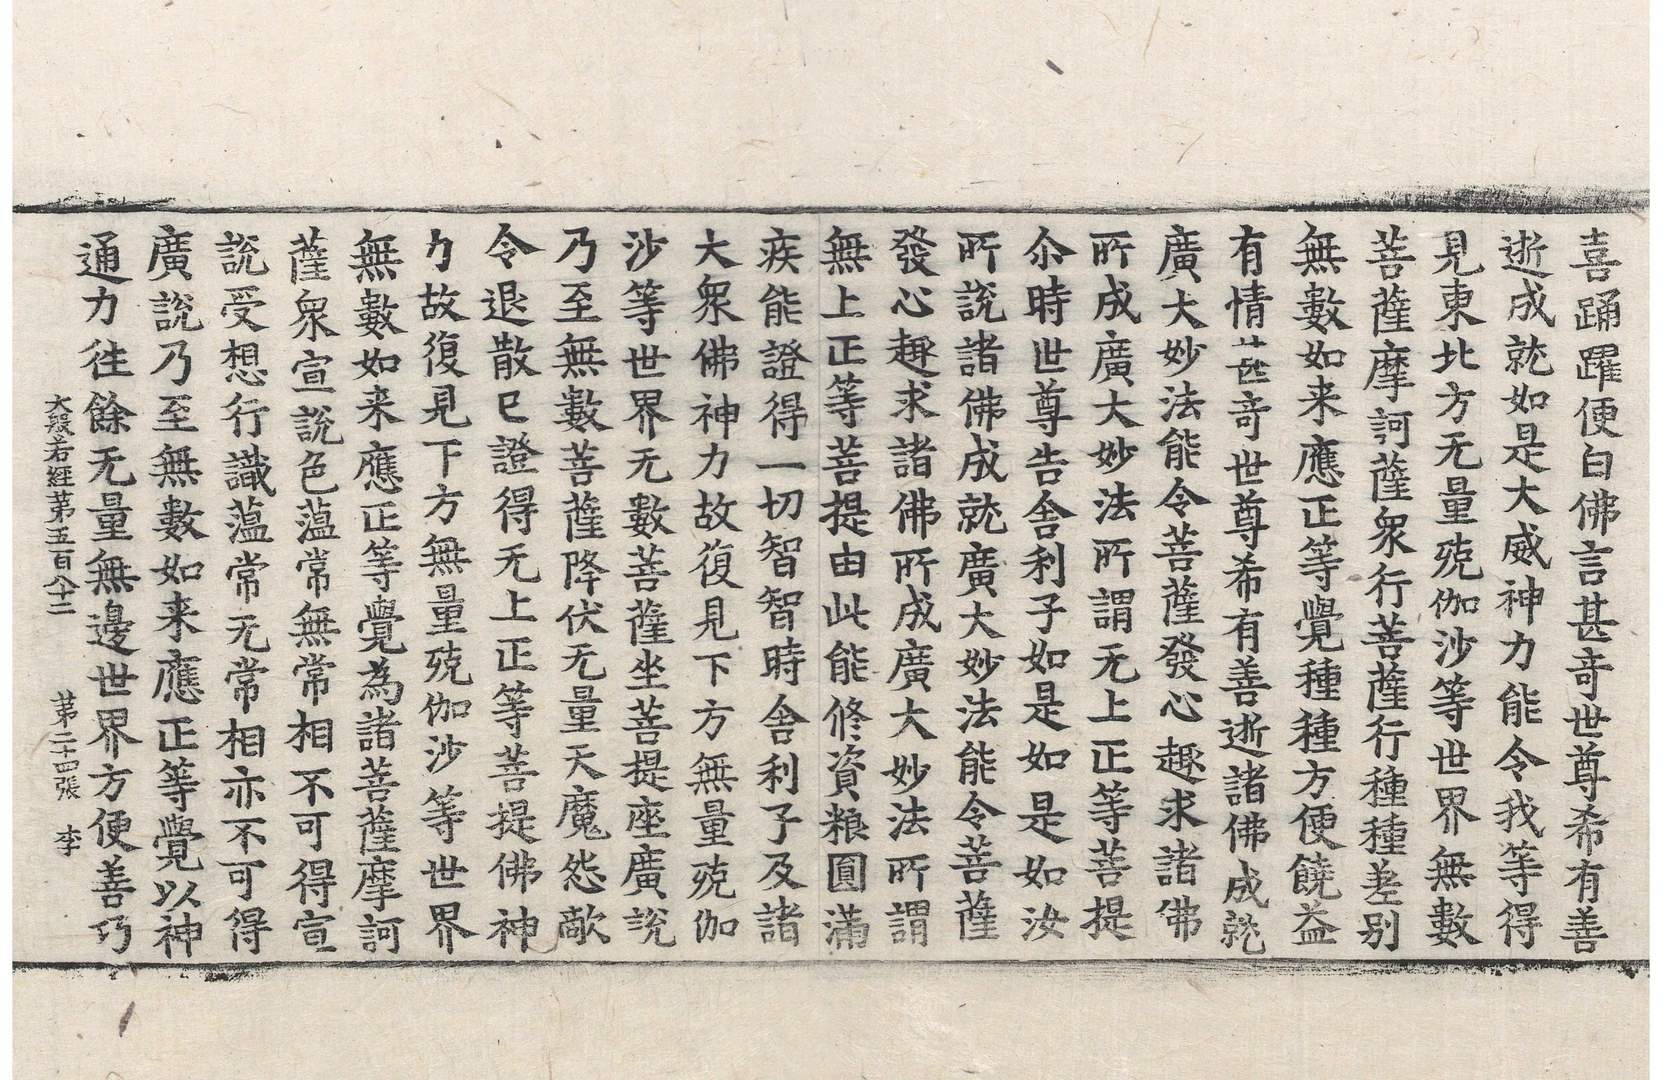 喜踊躍便白佛言甚奇世尊希有善
逝成就如是大威神力能令我等得
見東北方无量殑伽沙等世界無數
菩薩摩訶薩衆行菩薩行種種差别
無數如来應正等覺種種方便饒益
有情甚奇世尊希有善逝諸佛成就
廣大妙法能令菩薩發心趣求諸佛
所成廣大妙法所謂无上正等菩提
尒時世尊告舍利子如是如是如汝
所說諸佛成就廣大妙法能令菩薩
發心趣求諸佛所成廣大妙法所謂
無上正等菩提由此能修資粮圓滿
疾能證得一切智智時舍利子及諸
大衆佛神力故復見下方無量殑伽
沙等世界无數菩薩坐菩提座廣說
乃至無數菩薩降伏无量天魔怨敵
令退散已證得无上正等菩提佛神
力故復見下方無量殑伽沙等世界
無數如来應正等覺為諸菩薩摩訶
薩衆宣說色薀常無常相不可得宣
說受想行識薀常无常相亦不可得
廣說乃至無數如来應正等覺以神
通力往餘无量無邊世界方便善巧
大般若經第五百八十二 第二十四張 李